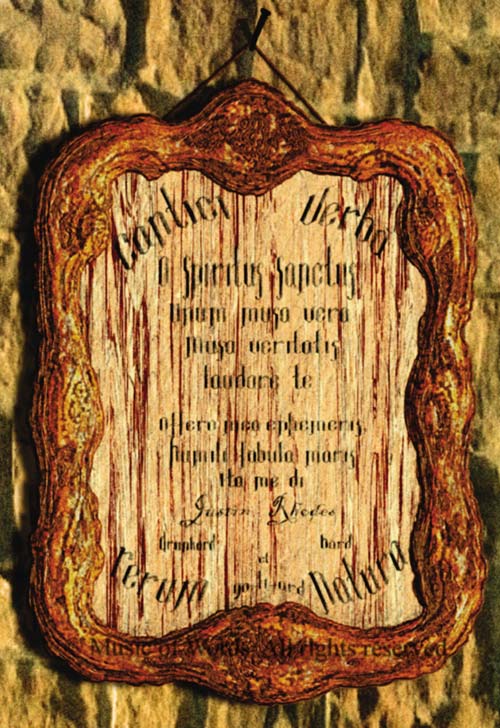 Cantici Verba
O Spiritus Sanctus
Unum musa vera
Musa veritatis
laudare te
Offero mea ephemeris,
humili fabula maris
Ita me di
Justin Rhodes
drunkard bard
et
rerum Natura
Music of Words. All rights reserved